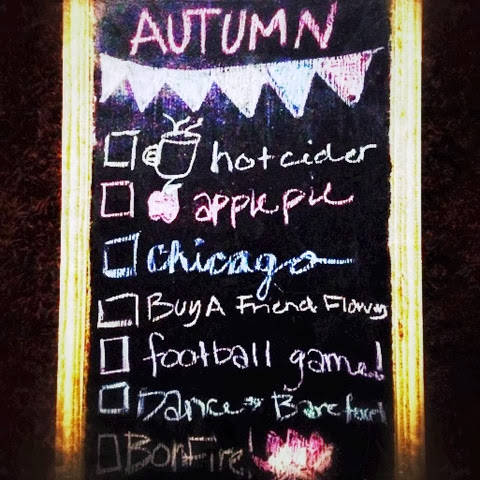 AUTUMN
hot cider
apple pie
chicago
Buy A Friend Flowers
football game!
Dance Barefoot
BonFire!